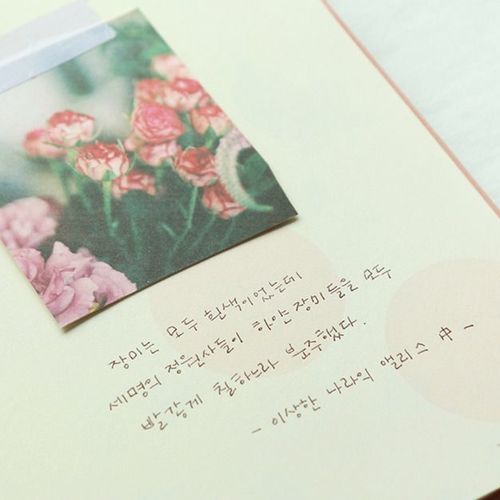 장미는 모두 흰색이었는데
세명의 정원사들이 하얀 장미들을 모두
빨갛게 칠하느라 분주했다.
- 이상한 나라의 앨리스 中 -